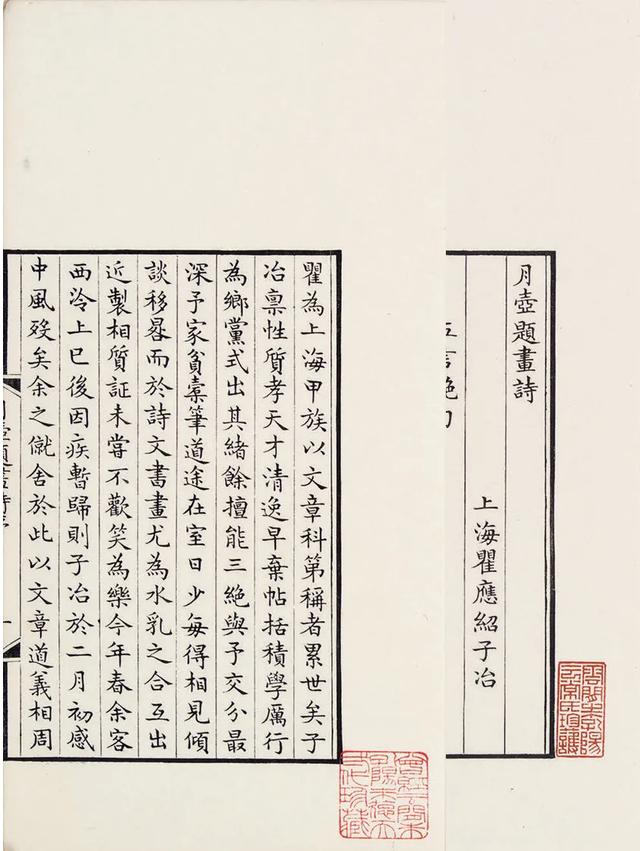 月壺題畫詩
上海瞿應紹子冶
五言絕句
瞿為上海甲族以文章科第稱者累世矣子
冶稟性質孝天才清逸早棄帖括積學厲行
為鄉黨式出其緒餘擅能三絕與予交分最
深予家貧橐筆道途在室日少每得相見傾
談移晷而於詩文書畫尤為水乳之合互出
近製相質証未嘗不歡笑為樂今年春余客
西泠上巳後因疾暫歸則子冶於二月初感
中風歿矣余之僦舍於此以文章道義相周